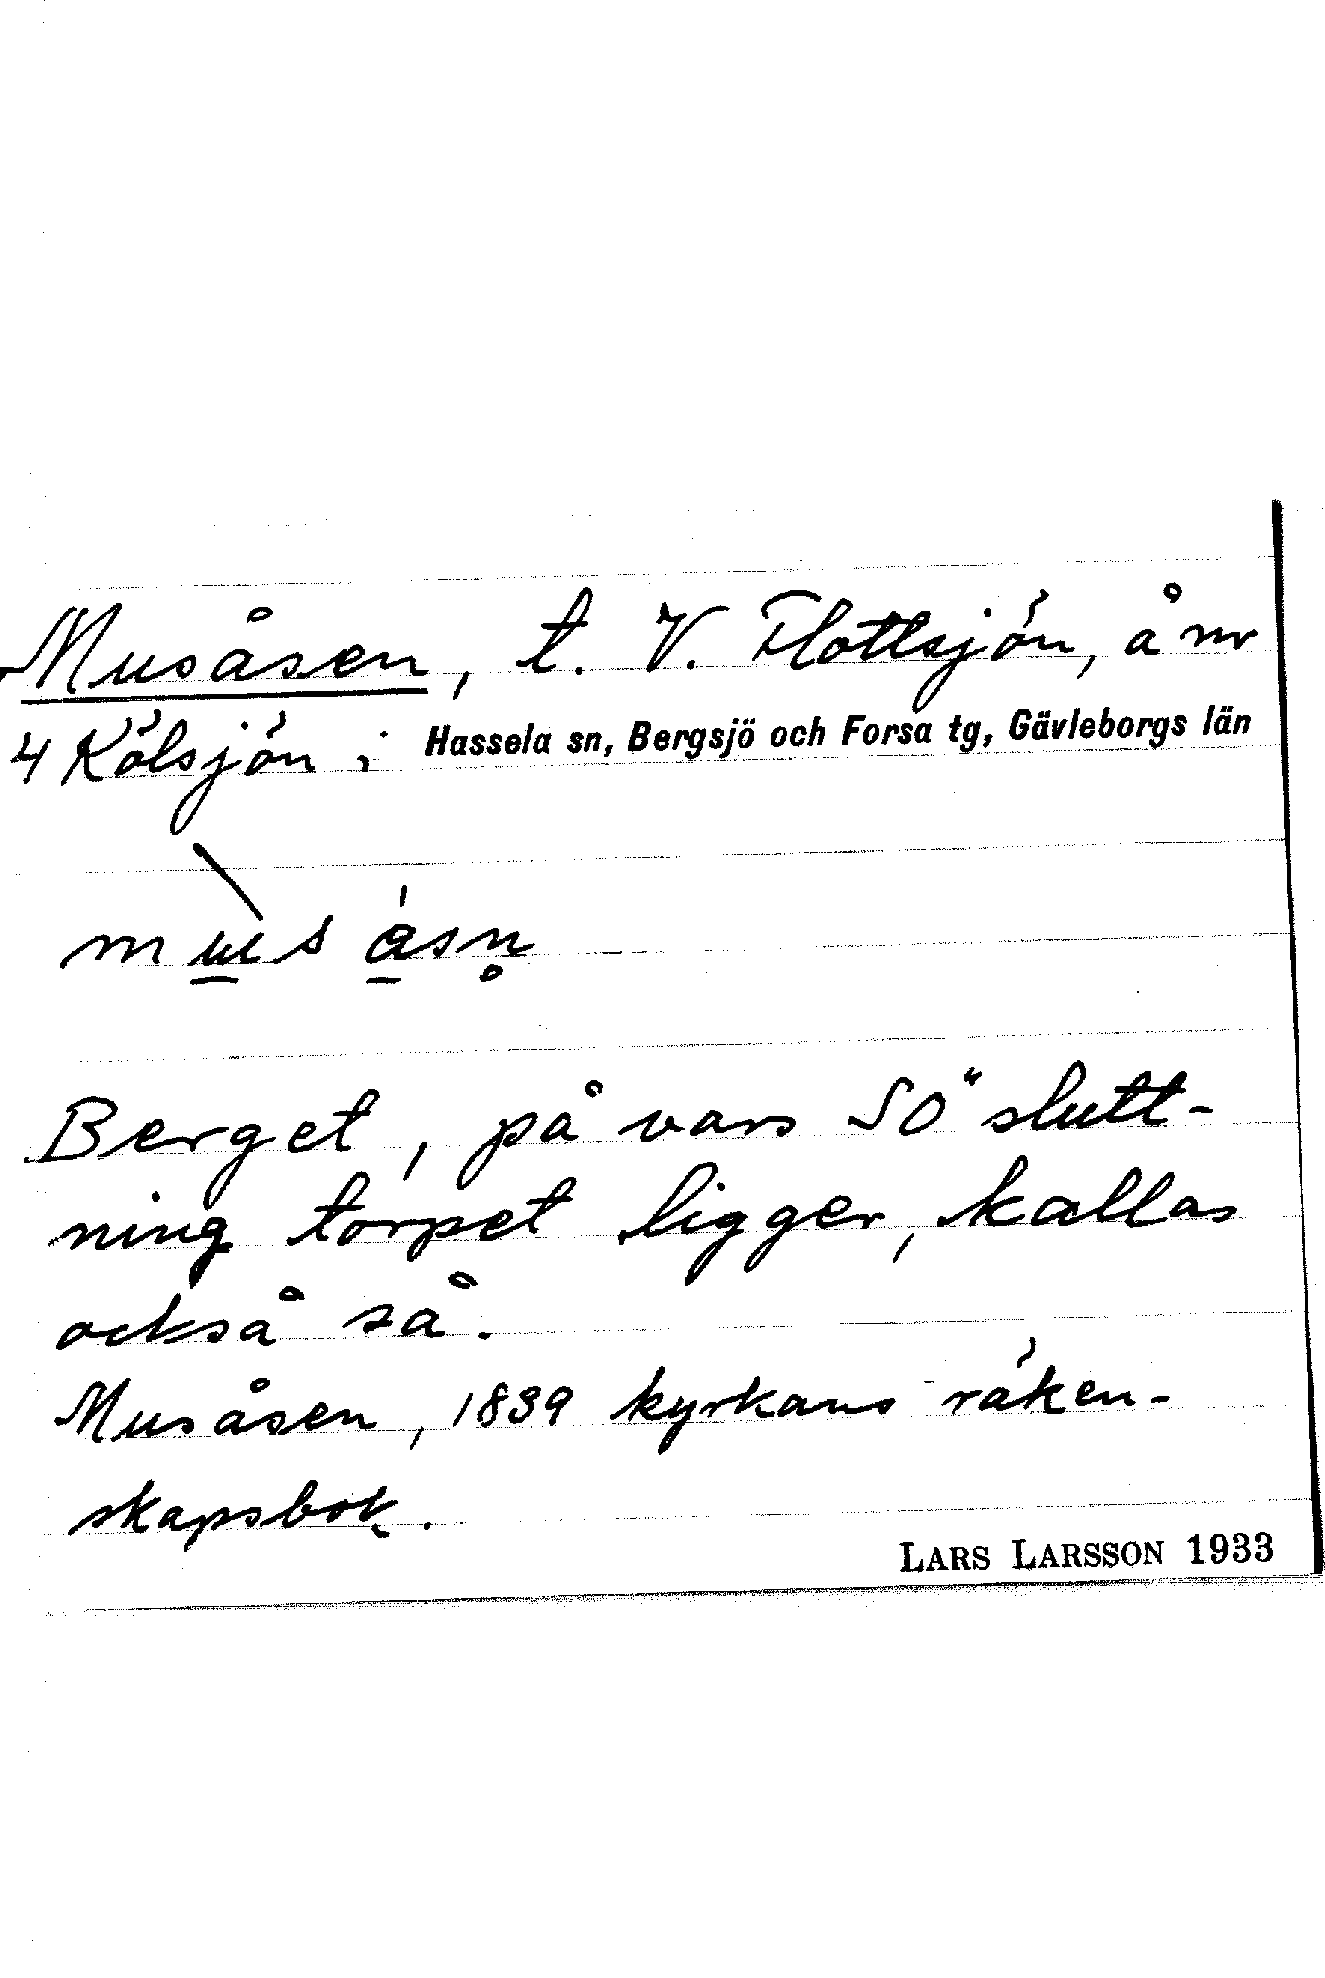 Musåsen, t. V. Flottsjön, å nr
4 Kölsjön i Hassela sn, Bergsjö och Forsa tg, Gävleborgs län
Berget, på vars SÖ slutt-
ning torpet ligger, kallas
också så.
Musåsen, 1839 kyrkans räken-
skapsbok.
LARS LARSSON 1933